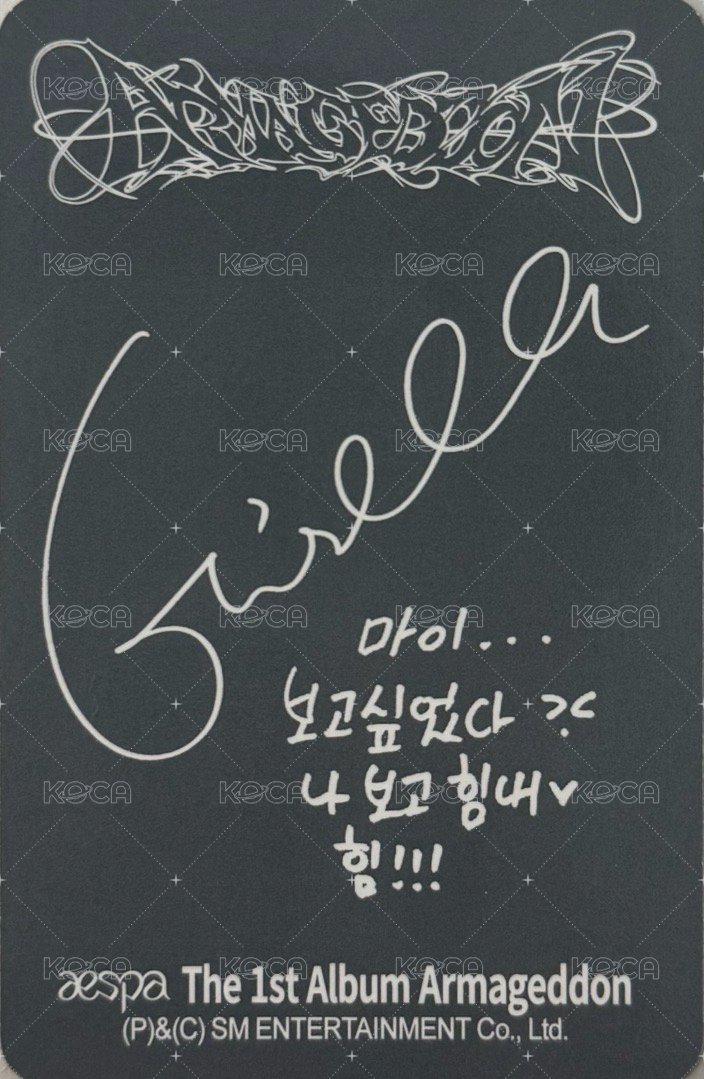 ARMAGEDDON
Giselle
마이...
보고싶었다 ><
나 보고 힘내♥
힘!!!
aespa The 1st Album Armageddon
(P)&(C) SM ENTERTAINMENT Co., Ltd.
KOCA